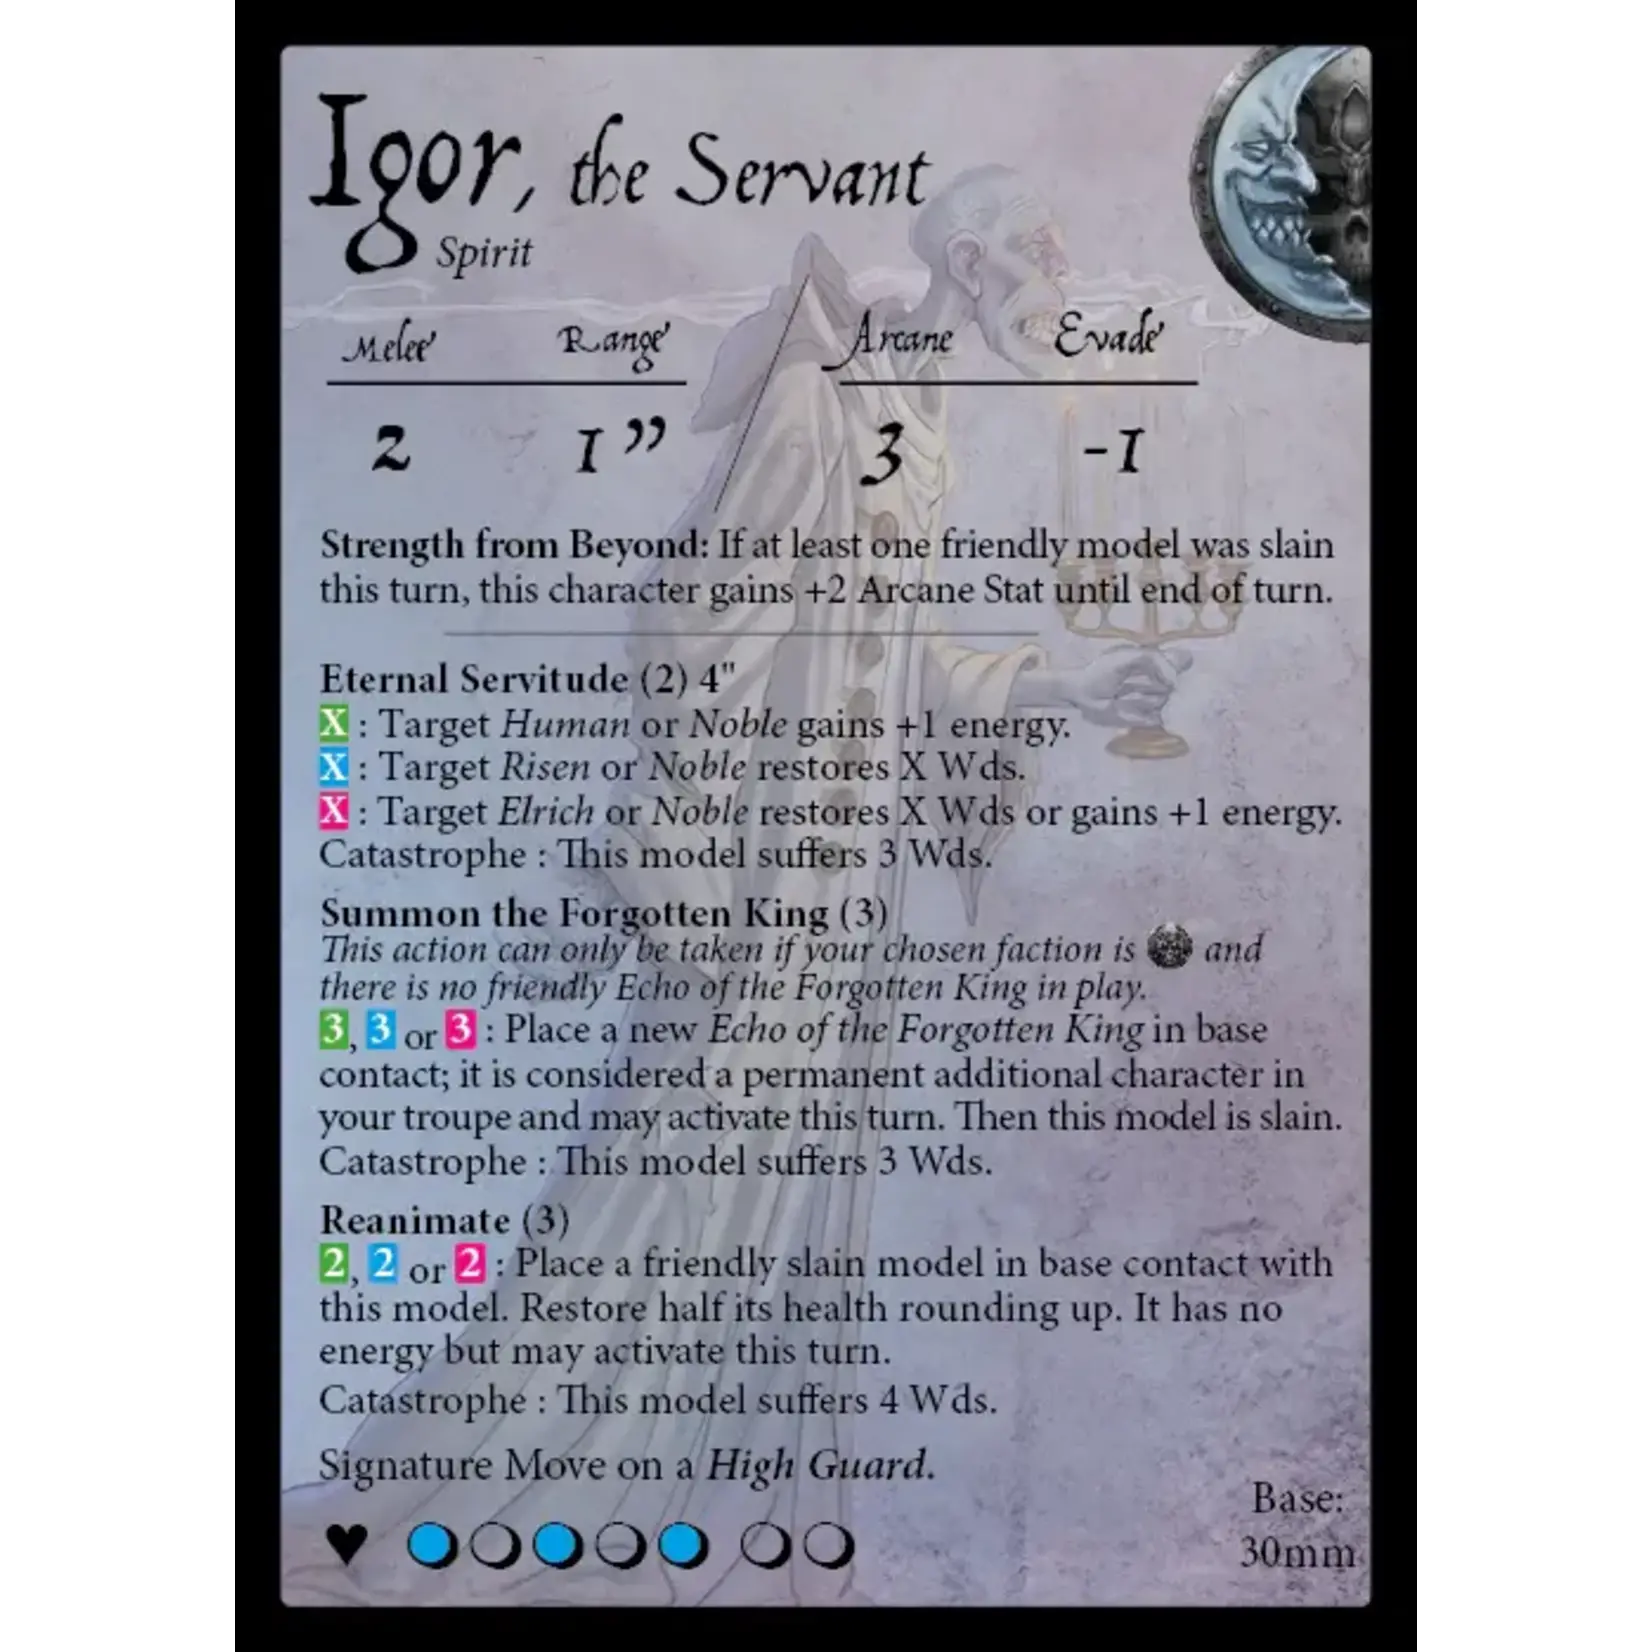 Igor, the Servant
Spirit
Melee Range Arcane Evade
2 1” 3 -1
Strength from Beyond: If at least one friendly model was slain
this turn, this character gains +2 Arcane Stat until end of turn.
Eternal Servitude (2) 4"
X : Target Human or Noble gains +1 energy.
X : Target Risen or Noble restores X Wds.
X : Target Elrich or Noble restores X Wds or gains +1 energy.
Catastrophe : This model suffers 3 Wds.
Summon the Forgotten King (3)
This action can only be taken if your chosen faction is and
there is no friendly Echo of the Forgotten King in play.
3, 3 or 3 : Place a new Echo of the Forgotten King in base
contact; it is considered a permanent additional character in
your troupe and may activate this turn. Then this model is slain.
Catastrophe : This model suffers 3 Wds.
Reanimate (3)
2, 2 or 2 : Place a friendly slain model in base contact with
this model. Restore half its health rounding up. It has no
energy but may activate this turn.
Catastrophe : This model suffers 4 Wds.
Signature Move on a High Guard.
Base:
30mm